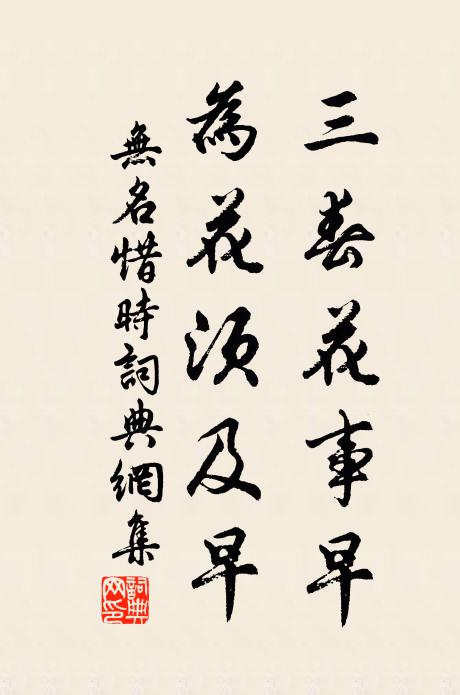 三春花事早
為花須及早
無名惜時詞典網集
詞典网印